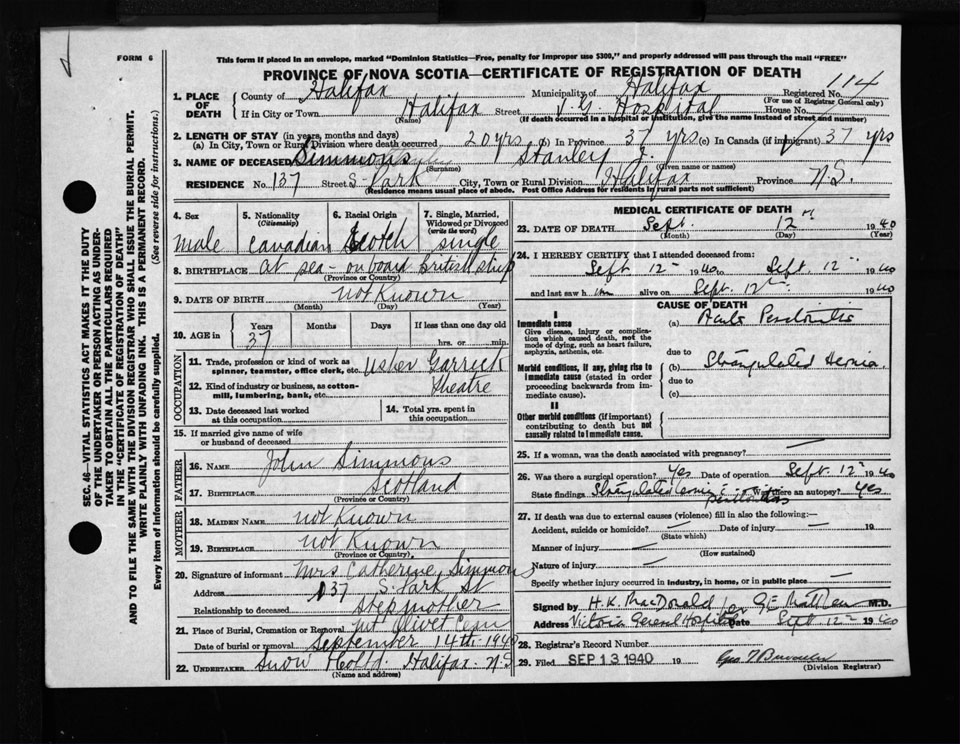 FORM 6
This form if placed in an envelope, marked "Dominion Statistics—Free, penalty for improper use $300," and properly addressed will pass through the mail "FREE"
PROVINCE OF NOVA SCOTIA—CERTIFICATE OF REGISTRATION OF DEATH
SEC. 46—VITAL STATISTICS ACT MAKES IT THE DUTY
OF THE UNDERTAKER OR PERSON ACTING AS UNDER-
TAKER TO OBTAIN ALL THE PARTICULARS REQUIRED
IN THE "CERTIFICATE OF REGISTRATION OF DEATH"
AND TO FILE THE SAME WITH THE DIVISION REGISTRAR WHO SHALL ISSUE THE BURIAL PERMIT.
WRITE PLAINLY WITH UNFADING INK. THIS IS A PERMANENT RECORD.
Every item of information should be carefully supplied. (See reverse side for instructions.)
1. PLACE OF DEATH County of Halifax Municipality of Halifax Registered No. 114
(For use of Registrar General only)
If in City or Town Halifax Street V. G. Hospital House No.
(Name) (If death occurred in a hospital or institution, give the name instead of street and number)
2. LENGTH OF STAY (in years, months and days)
(a) In City, Town or Rural Division where death occurred 20 yrs (b) In Province 37 yrs (c) In Canada (if immigrant) 37 yrs
3. NAME OF DECEASED Simmons Stanley J.
(Surname) (Given name or names)
RESIDENCE No. 137 Street S. Park City, Town or Rural Division Halifax Province N.S.
(Residence means usual place of abode. Post Office Address for residents in rural parts not sufficient)
4. Sex 5. Nationality (Citizenship) 6. Racial Origin 7. Single, Married, Widowed or Divorced (write the word)
male Canadian Scotch single
8. BIRTHPLACE at sea - on board British ship
(Province or Country)
9. DATE OF BIRTH not Known
(Month) (Day) (Year)
10. AGE in Years Months Days If less than one day old
37 hrs. or min.
OCCUPATION
11. Trade, profession or kind of work as spinner, teamster, office clerk, etc. Usher Garrick
12. Kind of industry or business, as cotton-mill, lumbering, bank, etc. theatre
13. Date deceased last worked at this occupation
14. Total yrs. spent in this occupation
15. If married give name of wife or husband of deceased
FATHER
16. Name John Simmons
17. Birthplace Scotland
(Province or Country)
MOTHER
18. Maiden Name not Known
19. Birthplace not Known
(Province or Country)
20. Signature of informant Mrs Catherine Simmons
Address 137 S. Park St
Relationship to deceased stepmother
21. Place of Burial, Cremation or Removal Mt Olivet Cem
Date of burial or removal September 14th 1940
22. UNDERTAKER Snow Co Ltd. Halifax N.S
(Name and address)
MEDICAL CERTIFICATE OF DEATH
23. DATE OF DEATH Sept 12 1940
(Month) (Day) (Year)
24. I HEREBY CERTIFY that I attended deceased from:
Sept 12 1940 to Sept. 12 1940
and last saw h im alive on Sept. 12 1940
CAUSE OF DEATH
I
Immediate cause
Give disease, injury or complication which caused death, not the mode of dying, such as heart failure, asphyxia, asthenia, etc.
(a) Acute Peritonitis
due to
Morbid conditions, if any, giving rise to immediate cause (stated in order proceeding backwards from immediate cause).
(b) Strangulated Hernia
due to
(c)
II
Other morbid conditions (if important) contributing to death but not causally related to immediate cause.
25. If a woman, was the death associated with pregnancy?
26. Was there a surgical operation? yes Date of operation Sept. 12 1940
State findings Strangulated hernia peritonitis Was there an autopsy? yes
27. If death was due to external causes (violence) fill in also the following:—
Accident, suicide or homicide? Date of injury 19
(State which)
Manner of injury
(How sustained)
Nature of injury
Specify whether injury occurred in industry, in home, or in public place
Signed by H. K. MacDonald per M.D.
Address Victoria General Hospital Date Sept 12 1940
28. Registrar's Record Number
29. Filed SEP 13 1940 19
(Division Registrar)